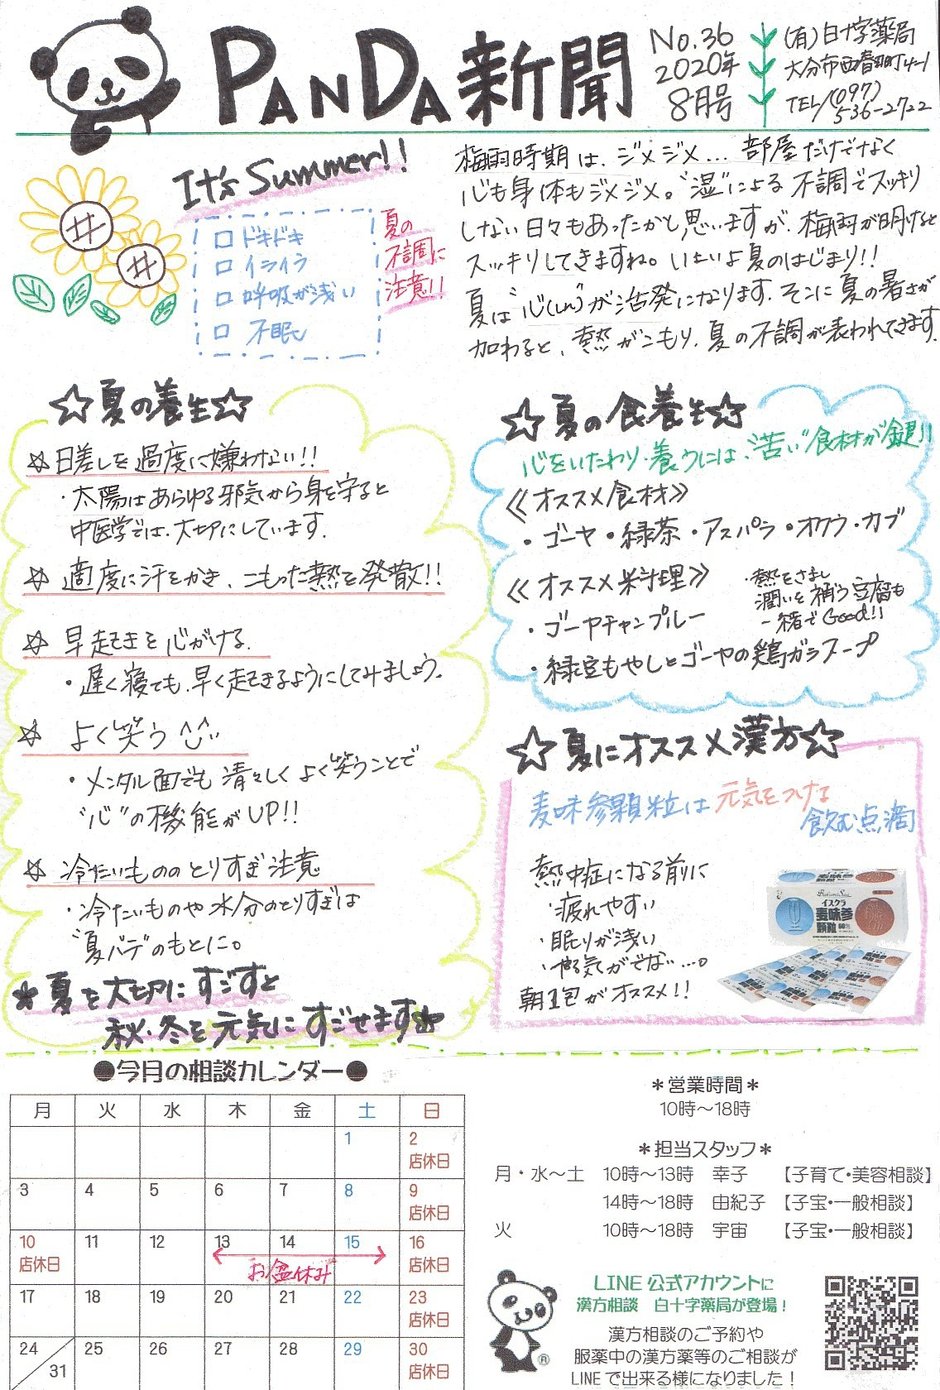 PANDA新聞
No.36
2020年
8月号
(有)白十字薬局
大分市西春日町4-1
TEL/(097)
536-2722
It's Summer!!
□ ドキドキ
□ イライラ
□ 呼吸が浅い
□ 不眠
夏の
不調に
注意!!
梅雨時期は、ジメジメ… 部屋だけでなく
心も身体もジメジメ。"湿"による 不調でスッキリ
しない日々もあったかと思いますが、梅雨が明けると
スッキリしてきますね。いよいよ夏のはじまり!!
夏は"心(しん)"が活発になります。そこに夏の暑さが
加わると、熱がこもり、夏の不調が表われてきます。
☆夏の養生☆
☆ 日差しを過度に嫌わない!!
・太陽はあらゆる邪気から身を守ると
中医学では、大切にしています。
☆ 適度に汗をかき、こもった熱を発散!!
☆ 早起きを心がける。
・遅く寝ても、早く起きるようにしてみましょう。
☆ よく笑う ^^
・メンタル面でも 清々しく よく笑うことで
"心"の機能がUP!!
☆ 冷たいもののとりすぎ注意
・冷たいものや水分のとりすぎは
"夏バテ"のもとに。
★夏を大切にすごすと
秋・冬を元気にすごせます★
☆夏の食養生☆
心をいたわり・養うには、"苦い"食材が鍵!!
《オススメ食材》
・ゴーヤ・緑茶・アスパラ・オクラ・カブ
《オススメ料理》
・ゴーヤチャンプルー
・熱をさまし
潤いを補う豆腐も
一緒でGood!!
・緑豆もやしとゴーヤの鶏ガラスープ
☆夏にオススメ漢方☆
麦味参顆粒は 元気をつける
飲む点滴
熱中症になる前に
・疲れやすい
・眠りが浅い
・やる気がでない…。
朝1包がオススメ!!
イスクラ
麦味参
顆粒
●今月の相談カレンダー●
月 火 水 木 金 土 日
1 2
店休日
3 4 5 6 7 8 9
店休日
10 11 12 13 14 15 16
店休日 お盆休み 店休日
17 18 19 20 21 22 23
店休日
24/31 25 26 27 28 29 30
店休日
＊営業時間＊
10時〜18時
＊担当スタッフ＊
月・水〜土 10時〜13時 幸子 【子育て・美容相談】
14時〜18時 由紀子 【子宝・一般相談】
火 10時〜18時 宇宙 【子宝・一般相談】
LINE 公式アカウントに
漢方相談 白十字薬局が登場！
漢方相談のご予約や
服薬中の漢方薬等のご相談が
LINEで出来る様になりました！
®